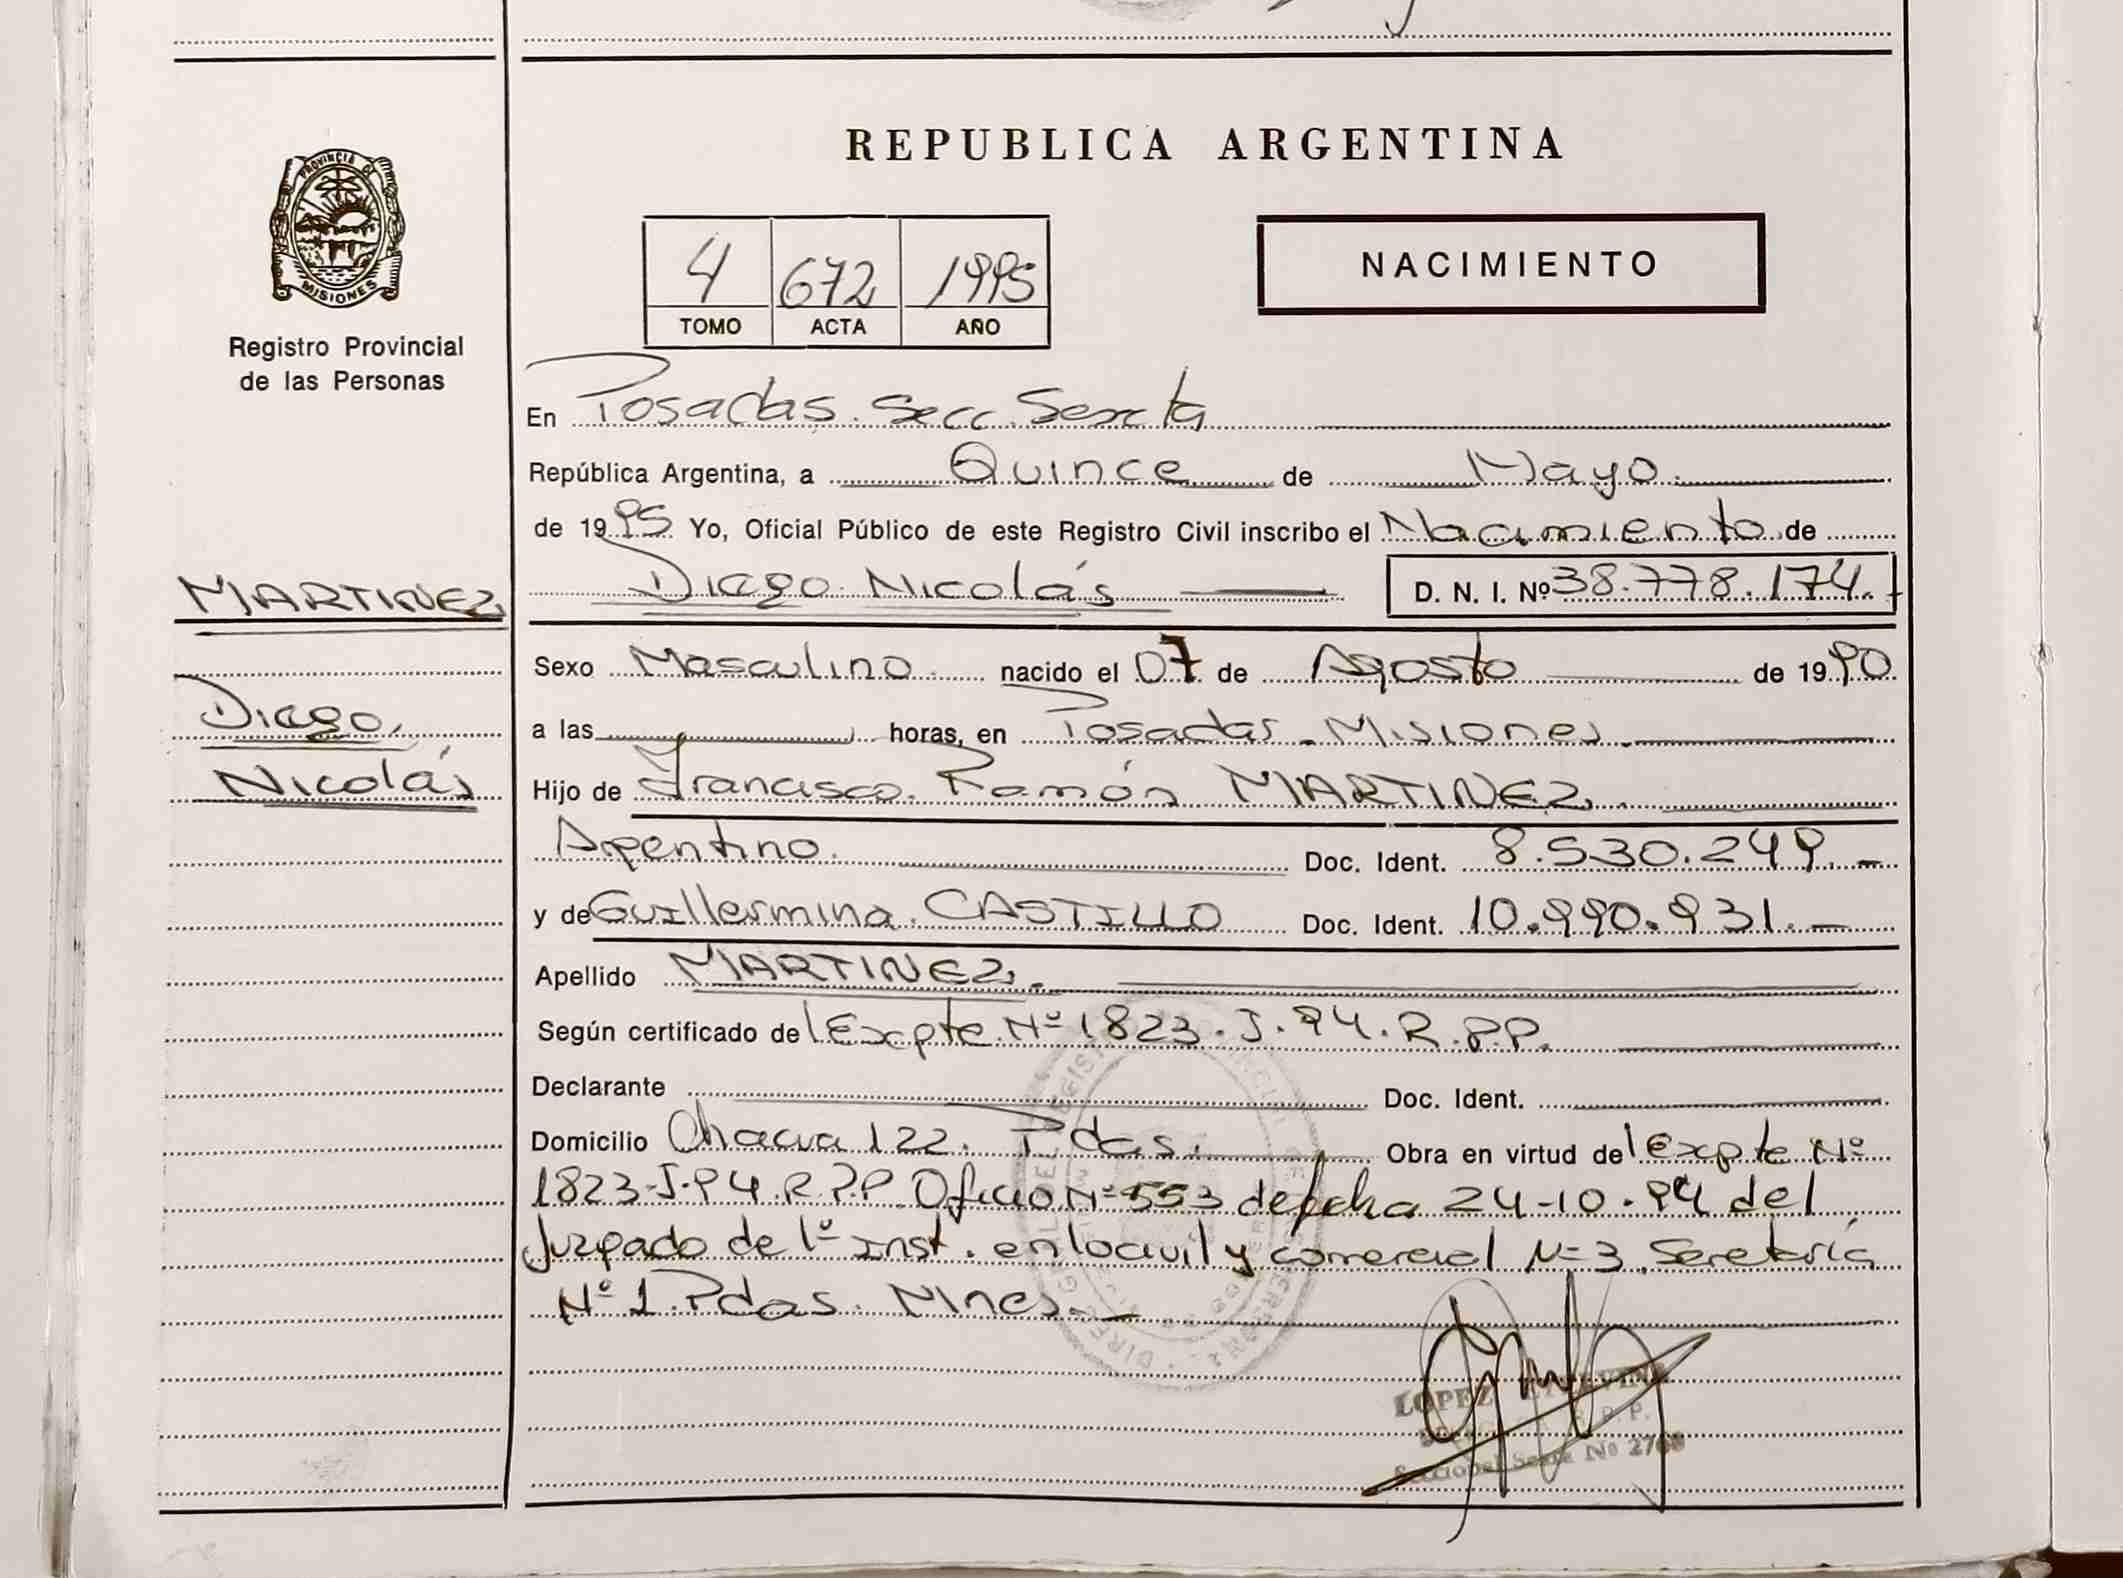 PROVINCIA DE
MISIONES
Registro Provincial
de las Personas
REPUBLICA ARGENTINA
4 672 1995
TOMO ACTA AÑO
NACIMIENTO
En Posadas. Secc. Sexta
República Argentina, a Quince de Mayo.
de 1995 Yo, Oficial Público de este Registro Civil inscribo el Nacimiento de
MARTINEZ
Diego Nicolás D. N. I. Nº 38.778.174.-
Sexo Masculino. nacido el 07 de Agosto de 1990
Diego,
a las horas, en Posadas - Misiones.
Nicolás
Hijo de Francisco Ramón MARTINEZ
Argentino. Doc. Ident. 8.530.249.-
y de Guillermina CASTILLO Doc. Ident. 10.990.931.-
Apellido MARTINEZ.
Según certificado del Expte Nº 1823.J.94.R.P.P.
Declarante Doc. Ident.
Domicilio 122. Pdas. Obra en virtud del Expte Nº
1823-J-94.R.P.P Oficio Nº 553 de fecha 24-10-94 del
Juzgado de 1º inst. en lo civil y comercial Nº 3 Secretaría
Nº 1 Pdas. Mnes.-
LOPEZ
R. P. P.
Seccional Sexta Nº